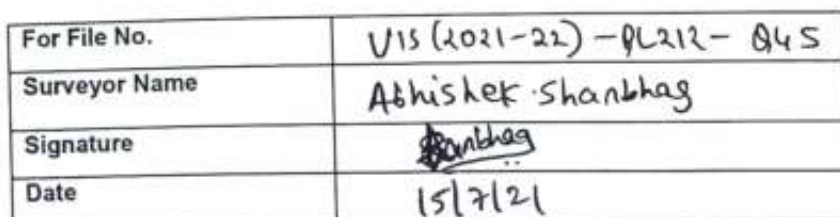 For File No. VIS (2021-22) - PL212 - Q45
Surveyor Name Abhishek Shanbhag
Signature Shanbhag
Date 15/7/21